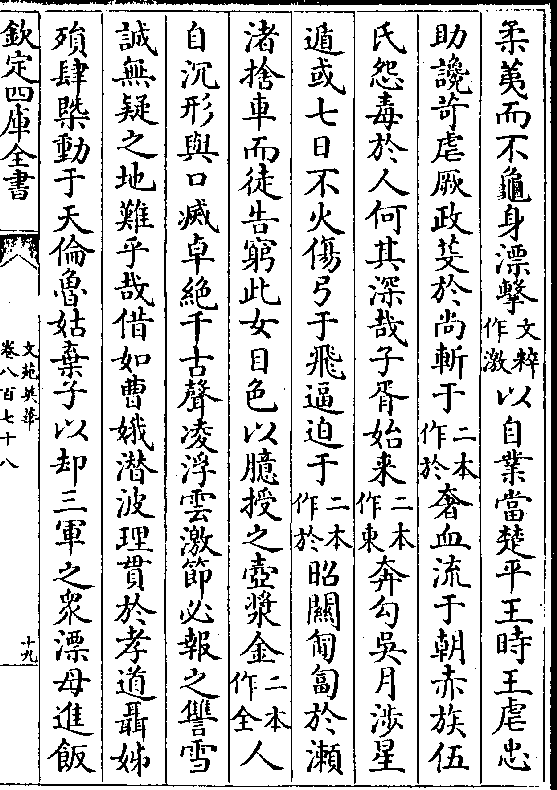 柔荑而不龜身漂擊文粹作激以自業當楚平王時王虐忠
助讒苛虐厥政芟於尚斬于二本作於奢血流于朝赤族伍
氏怨毒於人何其深哉子胥始来二本作東奔勾吳月涉星
遁或七日不火傷弓于飛逼迫于二本作於昭關匍匐於瀬
渚捨車而徒告窮此女目色以臆授之壺漿金二本作全人
自沉形與口滅卓絶千古聲凌浮雲激節必報之讐雪
誠無疑之地難乎哉借如曹娥潜波理貫於孝道聶姊
殞肆槩動于天倫魯姑棄子以却三軍之衆漂母進飯
欽定四庫全書
文苑英華
卷八百七十八
十九